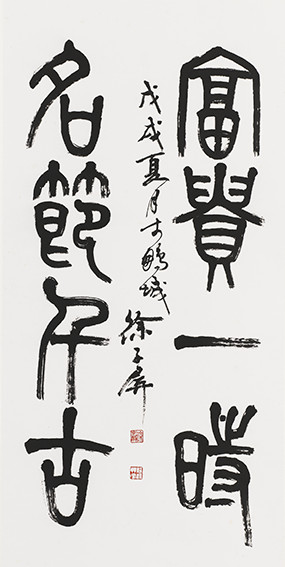 富貴一時
名節千古
戊戌夏月於鵬城徐子屏